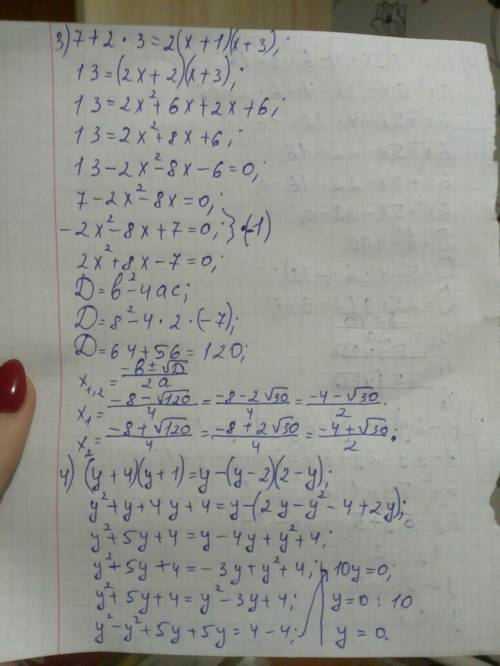 3) 7+2·3=2(x+1)(x+3);
13=(2x+2)(x+3);
13=2x²+6x+2x+6;
13=2x²+8x+6;
13-2x²-8x-6=0;
7-2x²-8x=0;
-2x²-8x+7=0; }·(-1)
2x²+8x-7=0;
D=b²-4ac;
D=8²-4·2·(-7);
D=64+56=120;
x₁,₂=(-b±√D)/2a
x₁=(-8-√120)/4=(-8-2√30)/4=(-4-√30)/2.
x₂=(-8+√120)/4=(-8+2√30)/4=(-4+√30)/2.
4) (y+4)(y+1)=y-(y-2)(2-y);
y²+y+4y+4=y-(2y-y²-4+2y);
y²+5y+4=y-4y+y²+4;
y²+5y+4=-3y+y²+4; 10y=0;
y²+5y+4=y²-3y+4; y=0:10
y²-y²+5y+5y=4-4; y=0.